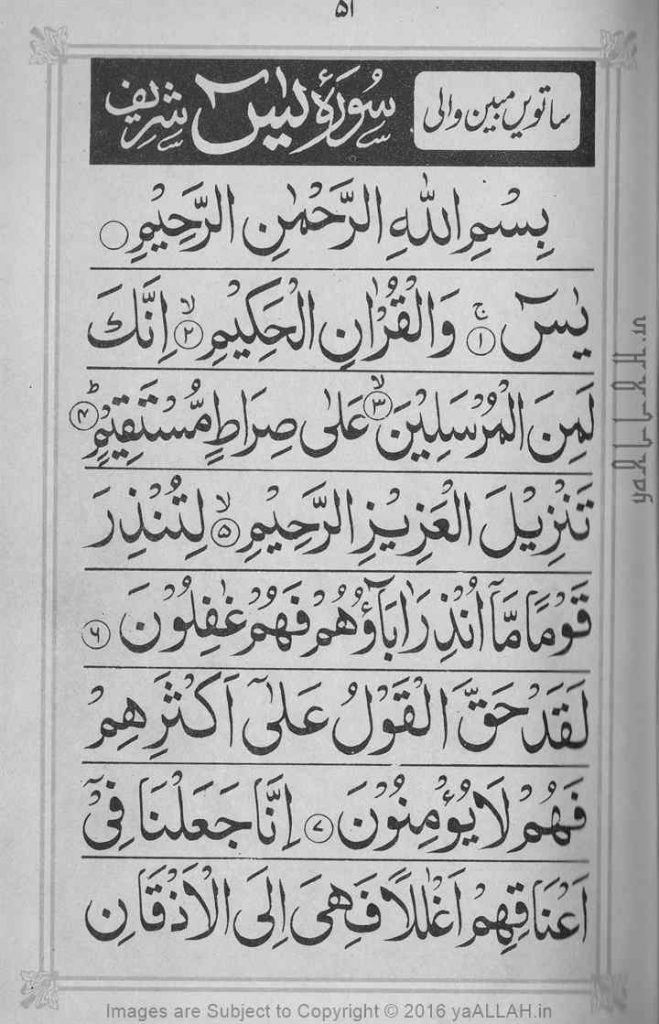 ۵۱
ساتویں مبین والی
سُورَۃُ یٰسٓ شریف
بِسْمِ اللّٰهِ الرَّحْمٰنِ الرَّحِیْمِ ○
یٰسٓ ۚ﴿۱﴾ وَالْقُرْاٰنِ الْحَكِیْمِ ۙ﴿۲﴾ اِنَّكَ
لَمِنَ الْمُرْسَلِیْنَ ۙ﴿۳﴾ عَلٰی صِرَاطٍ مُّسْتَقِیْمٍ ؕ﴿۴﴾
تَنْزِیْلَ الْعَزِیْزِ الرَّحِیْمِ ۙ﴿۵﴾ لِتُنْذِرَ
قَوْمًا مَّاۤ اُنْذِرَ اٰبَآؤُهُمْ فَهُمْ غٰفِلُوْنَ ﴿۶﴾
لَقَدْ حَقَّ الْقَوْلُ عَلٰۤی اَكْثَرِهِمْ
فَهُمْ لَا یُؤْمِنُوْنَ ﴿۷﴾ اِنَّا جَعَلْنَا فِیْۤ
اَعْنَاقِهِمْ اَغْلٰلًا فَهِیَ اِلَی الْاَذْقَانِ
yaALLAH.in
Images are Subject to Copyright © 2016 yaALLAH.in